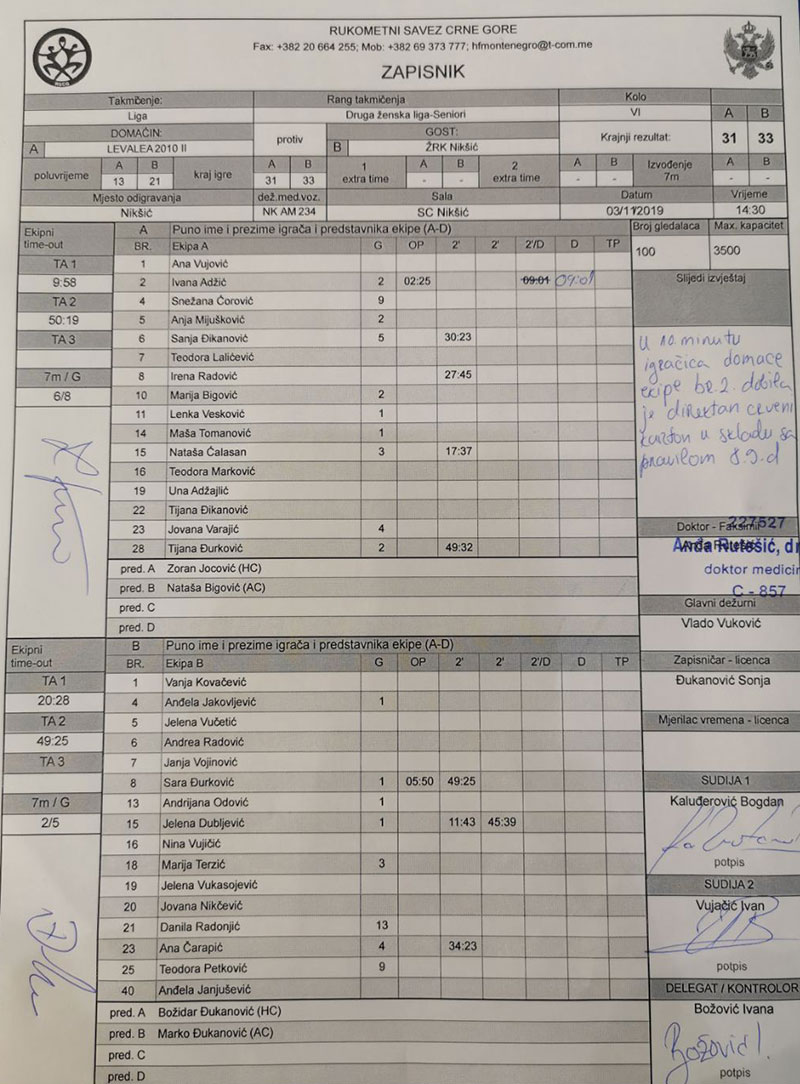 RUKOMETNI SAVEZ CRNE GORE
Fax: +382 20 664 255; Mob: +382 69 373 777; hfmontenegro@t-com.me
ZAPISNIK
Takmčenje: Rang takmičenja Kolo A B
Liga Druga ženska liga-Seniori VI
DOMAĆIN: protiv GOST: Krajnji rezultat: 31 33
A LEVALEA 2010 II B ŽRK Nikšić
poluvrijeme A B kraj igre A B 1 extra time A B 2 extra time A B Izvođenje 7m A B
13 21 31 33 - - - - - -
Mjesto odigravanja dež.med.voz. Sala Datum Vrijeme
Nikšić NK AM 234 SC Nikšić 03/11/2019 14:30
Ekipni time-out A Puno ime i prezime igrača i predstavnika ekipe (A-D) Broj gledalaca Max. kapacitet
BR. Ekipa A G OP 2' 2' 2'/D D TP 100 3500
TA 1 1 Ana Vujović
9:58 2 Ivana Adžić 2 02:25 09:01 09:01 Slijedi izvještaj
TA 2 4 Snežana Ćorović 9
50:19 5 Anja Mijušković 2
TA 3 6 Sanja Đikanović 5 30:23
7 Teodora Lalićević
7m / G 8 Irena Radović 27:45
6/8 10 Marija Bigović 2
11 Lenka Vesković 1
14 Maša Tomanović 1
15 Nataša Ćalasan 3 17:37
16 Teodora Marković
19 Una Adžajlić
22 Tijana Đikanović
23 Jovana Varajić 4
28 Tijana Đurković 2 49:32
U 10. minutu
igračica domaće
ekipe br. 2. dobila
je direktan crveni
karton u skladu sa
pravilom 8.9.d
pred. A Zoran Jocović (HC)
pred. B Nataša Bigović (AC)
pred. C
pred. D
Doktor - Faksimil
227527
Anđa Rutešić, dr
doktor medicin
C - 857
Glavni dežurni
Vlado Vuković
Ekipni time-out B Puno ime i prezime igrača i predstavnika ekipe (A-D)
BR. Ekipa B G OP 2' 2' 2'/D D TP
TA 1 1 Vanja Kovačević
20:28 4 Anđela Jakovljević 1
TA 2 5 Jelena Vučetić
49:25 6 Andrea Radović
TA 3 7 Janja Vojinović
8 Sara Đurković 1 05:50 49:25
7m / G 13 Andrijana Odović 1
2/5 15 Jelena Dubljević 1 11:43 45:39
16 Nina Vujičić
18 Marija Terzić 3
19 Jelena Vukasojević
20 Jovana Nikčević
21 Danila Radonjić 13
23 Ana Čarapić 4 34:23
25 Teodora Petković 9
40 Anđela Janjušević
pred. A Božidar Đukanović (HC)
pred. B Marko Đukanović (AC)
pred. C
pred. D
Zapisničar - licenca
Đukanović Sonja
Mjerilac vremena - licenca
SUDIJA 1
Kaluđerović Bogdan
potpis
SUDIJA 2
Vujačić Ivan
potpis
DELEGAT / KONTROLOR
Božović Ivana
Božović I.
potpis